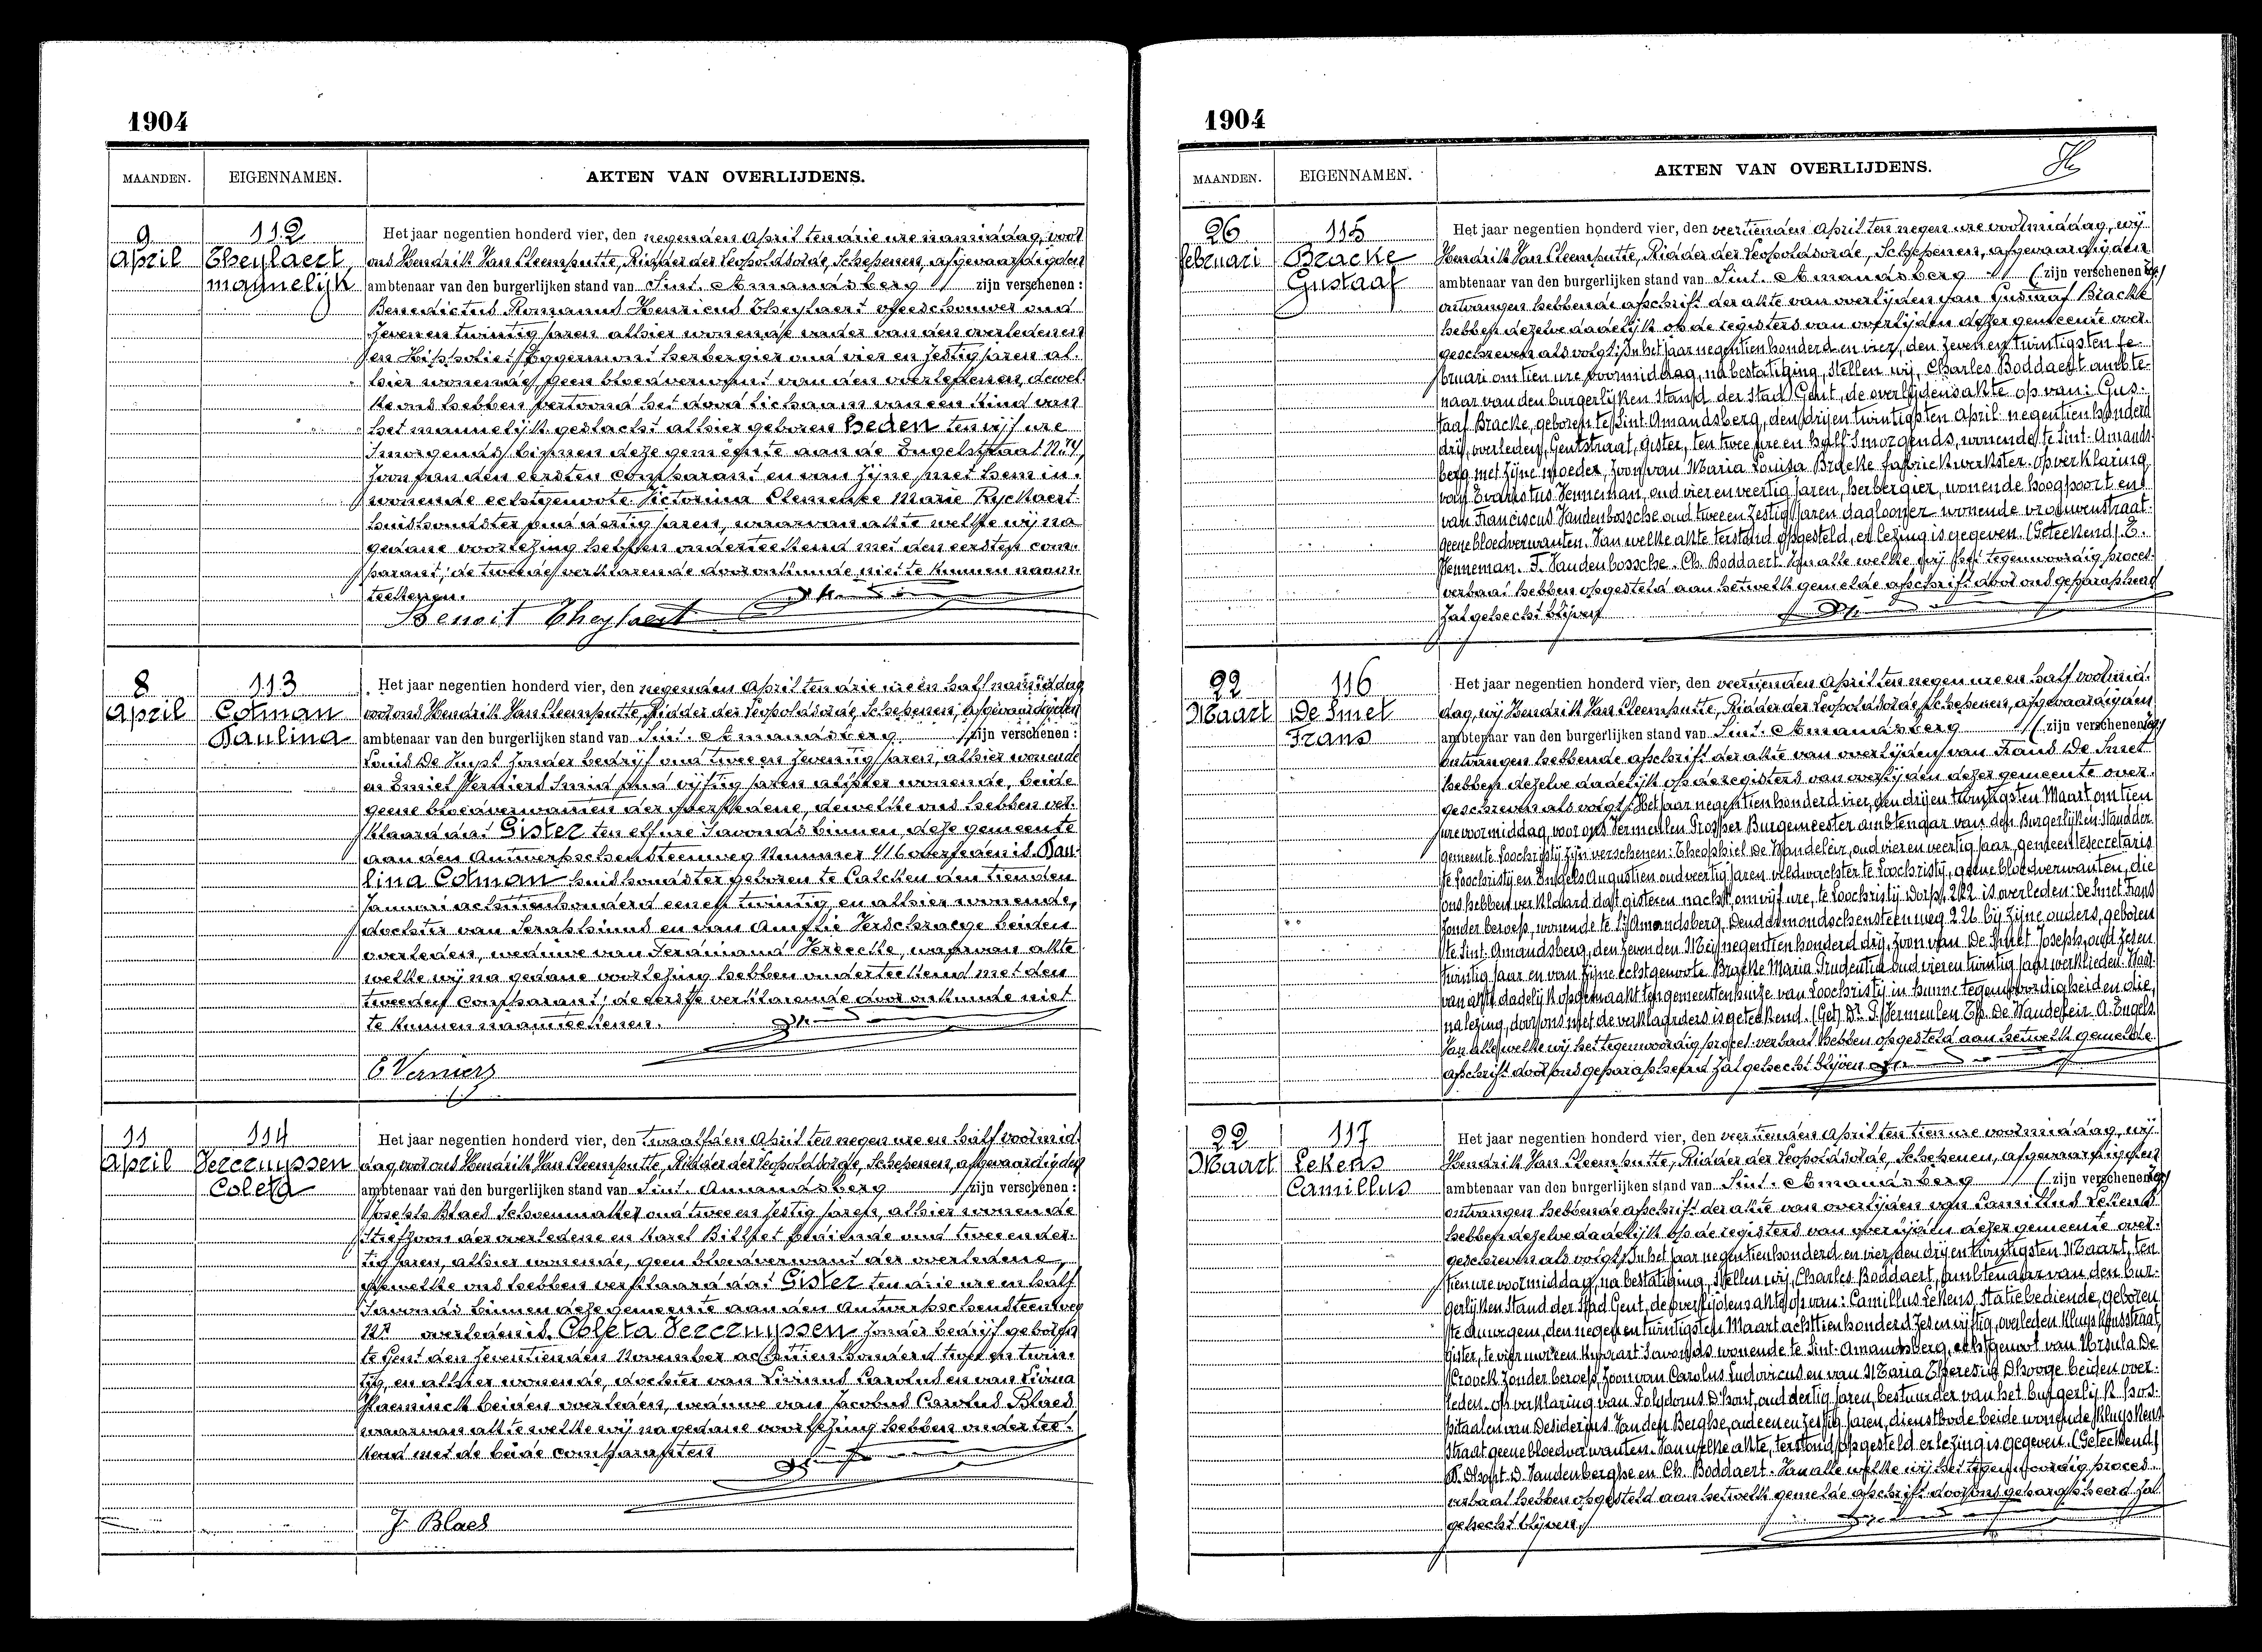 1904
MAANDEN. EIGENNAMEN. AKTEN VAN OVERLIJDENS.
9 April
112
Theylaert
mannelijk
Het jaar negentien honderd vier, den negenden April ten drie ure namiddag, voor
ons Hendrik Van Cleemputte, Ridder der Leopoldsorde, Schepenen, afgevaardigden
ambtenaar van den burgerlijken stand van Sint-Amandsberg zijn verschenen:
Benedictus Romanus Henricus Theylaert oud
zeven en twintig jaren alhier wonende vader van den overledenen
en Hippoliet Eggermont herbergier oud vier en zestig jaren al-
hier wonende, geen bloedverwant van den overledenen, dewel-
ke ons hebben vertoond het dood lichaam van een kind van
het mannelijk geslacht alhier geboren heden ten vijf ure
'smorgends, binnen deze gemeente aan de Engelstraat N.
zoon van den eersten comparant en van zijne met hem in-
wonende echtgenoote Victorina Clemence Marie Ryckaert
huishoudster oud dertig jaren, waarvan akte welke wij na
gedane voorlezing hebben onderteekend met den eersten com-
parant; de tweede verklarende door onkunde niet te kunnen naam-
teekenen.
Benoit Theylaert
8 April
113
Cotman
Paulina
Het jaar negentien honderd vier, den negenden April ten drie ure en half namiddag
voor ons Hendrik Van Cleemputte, Ridder der Leopoldsorde, Schepenen, afgevaardigden
ambtenaar van den burgerlijken stand van Sint-Amandsberg zijn verschenen:
Louis De zonder bedrijf oud twee en zeventig jaren, alhier wonende
en Emiel Verniers smid oud vijftig jaren alhier wonende, beide
geene bloedverwanten der overledene, dewelke ons hebben ver-
klaard dat Gister ten elf ure 'savonds binnen deze gemeente
aan den Antwerpschensteenweg Nummer 416 overleden is Pau-
lina Cotman huishoudster geboren te Calcken den tienden
Januari achttienhonderd eenen twintig en alhier wonende,
dochter van Seraphinus en van Amelie Verschraege beiden
overleden, weduwe van Ferdinand Vereecke, waarvan akte
welke wij na gedane voorlezing hebben onderteekend met den
tweeden comparant; de eerste verklarende door onkunde niet
te kunnen naamteekenen.
E Verniers
11 April
114
Vercruyssen
Coleta
Het jaar negentien honderd vier, den twaalfden April ten negen ure en half voormid-
dag, voor ons Hendrik Van Cleemputte, Ridder der Leopoldsorde, Schepenen, afgevaardigden
ambtenaar van den burgerlijken stand van Sint-Amandsberg zijn verschenen:
Joseph Blaes schoenmaker oud twee en zestig jaren, alhier wonende
stiefzoon der overledene en Karel Billiet bediende oud twee en der-
tig jaren, alhier wonende, geen bloedverwant der overledene,
dewelke ons hebben verklaard dat Gister ten drie ure en half
'savonds binnen deze gemeente aan den Antwerpschensteenweg
overleden is Coleta Vercruyssen zonder bedrijf geboren
te Gent den zeventienden November achttien honderd twee en twin-
tig, en alhier wonende, dochter van Livinus Carolus en van Livina
Haeminck beiden overleden, weduwe van Jacobus Carolus Blaes
waarvan akte welke wij na gedane voorlezing hebben ondertee-
kend met de beide comparanten
J. Blaes
1904
MAANDEN. EIGENNAMEN. AKTEN VAN OVERLIJDENS.
26 februari
115
Bracke
Gustaaf
Het jaar negentien honderd vier, den veertienden April ten negen ure voormiddag, wij
Hendrik Van Cleemputte, Ridder der Leopoldsorde, Schepenen, afgevaardigden
ambtenaar van den burgerlijken stand van Sint-Amandsberg (zijn verschenen:)
ontvangen hebbende afschrift der akte van overlijden van Gustaaf Bracke
hebben dezelve dadelijk op de registers van overlijden dezer gemeente over-
geschreven als volgt: In het jaar negentien honderd en vier, den zeven en twintigsten fe-
bruari om tien ure voormiddag, na bestatiging, stellen wij, Charles Boddaert ambte-
naar van den burgerlijken Stand der Stad Gent, de overlijdensakte op van: Gus-
taaf Bracke, geboren te Sint-Amandsberg, den drij en twintigsten April negentien honderd
drij, overleden, Gentstraat, gister, ten twee ure en half 'smorgends, wonende te Sint-Amands-
berg met zijne moeder, zoon van Maria Louisa Bracke fabriekwerkster. Op verklaring
van Evaristus Venneman, oud vier en veertig jaren, herbergier, wonende hoogpoort en
van Franciscus Vandenbossche oud twee en zestig jaren daglooner wonende vrouwenstraat
geene bloedverwanten. Van welke akte terstond opgesteld, er lezing is gegeven. (Geteekend) E.
Venneman. F. Vandenbossche. Ch. Boddaert. Van alle welke wij het tegenwoordig proces-
verbaal hebben opgesteld aan hetwelk gemelde afschrift door ons geparapheerd
zal gehecht blijven
22 Maart
116
De Smet
Frans
Het jaar negentien honderd vier, den veertienden April ten negen ure en half voormid-
dag, wij Hendrik Van Cleemputte, Ridder der Leopoldsorde Schepenen, afgevaardigden
ambtenaar van den burgerlijken stand van Sint-Amandsberg (zijn verschenen:)
ontvangen hebbende afschrift der akte van overlijden van Frans De Smet
hebben dezelve dadelijk op de registers van overlijden dezer gemeente over-
geschreven als volgt: Het jaar negentien honderd vier, den drij en twintigsten Maart om tien
ure voormiddag, voor ons Vermeulen Prosper Burgemeester ambtenaar van den Burgerlijken Stand der
gemeente Loochristij zijn verschenen: Theophiel De Wandeleir, oud vier en veertig jaar, gemeentesecretaris
te Loochristij en Engels Augustien oud veertig jaren veldwachter te Loochristij, geene bloedverwanten, die
ons hebben verklaard dat gisteren nacht om vijf ure, te Loochristij Dorp, 212 is overleden: De Smet Frans
zonder beroep, wonende te St Amandsberg, Dendermondschensteenweg 226 bij zijne ouders, geboren
te Sint-Amandsberg, den zevenden Mei negentien honderd drij, zoon van De Smet Joseph, oud zesen
twintig jaar en van zijne echtgenoote Bracke Maria Prudentia oud vier en twintig jaar werklieden. Waar-
van akte dadelijk opgemaakt ten gemeentenhuize van Loochristij in hunne tegenwoordigheid en die
na lezing, door ons met de verklaarders is geteekend. (Get) Dr P. Vermeulen Th. De Wandeleir. A. Engels
Van alle welke wij het tegenwoordig proces-verbaal hebben opgesteld aan hetwelk gemelde
afschrift door ons geparapheerd zal gehecht blijven
22 Maart
117
Lekens
Camillus
Het jaar negentien honderd vier, den veertienden April ten tien ure voormiddag, wij
Hendrik Van Cleemputte, Ridder der Leopoldsorde, Schepenen, afgevaardigden
ambtenaar van den burgerlijken stand van Sint-Amandsberg (zijn verschenen:)
ontvangen hebbende afschrift der akte van overlijden van Camillus Lekens
hebben dezelve dadelijk op de registers van overlijden dezer gemeente over-
geschreven als volgt: In het jaar negentien honderd en vier, den drij en twintigsten Maart, ten
tien ure voormiddag, na bestatiging, stellen wij, Charles Boddaert, ambtenaar van den bur-
gerlijken Stand der Stad Gent, de overlijdensakte op van: Camillus Lekens, statiebediende, geboren
te Auwegem, den negen en twintigsten Maart achttien honderd zes en vijftig, overleden Kluyskensstraat,
gister, te vier ure en kwaart 'savonds wonende te Sint-Amandsberg, echtgenoot van Ursula De
Croock zonder beroep, zoon van Carolus Ludovicus en van Maria Theresia Dhooge beiden over-
leden. Op verklaring van Polydorus D'hont, oud dertig jaren, bestuurder van het burgerlijk hos-
pitaal en van Desiderius Vanden Berghe, oud een en zestig jaren, dienstbode beide wonende Kluyskens-
straat geene bloedverwanten. Van welke akte, terstond opgesteld er lezing is gegeven. (Geteekend)
P. Dhont. D. Vandenberghe en Ch. Boddaert. Van alle welke wij het tegenwoordig proces-
verbaal hebben opgesteld aan hetwelk gemelde afschrift door ons geparapheerd zal
gehecht blijven.